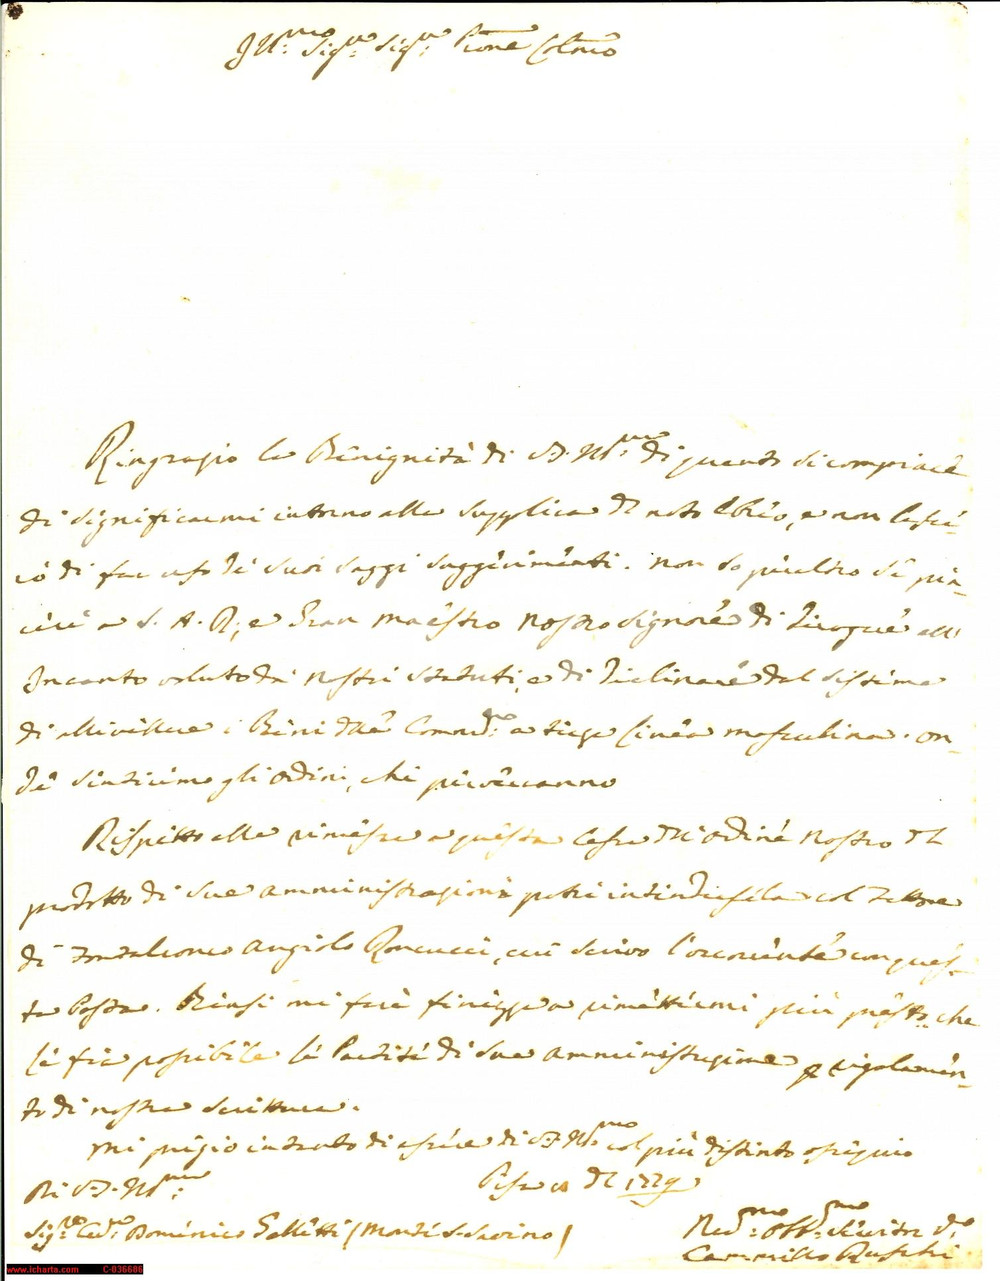 Ill:mo Sig:re Sig:re Prone Colmo
Ringrazio la Benignità di V.S. Ill:ma di quanto si compiace
di significarmi intorno alla supplica del noto Ebreo, e non lasce-
rò di far uso de suoi saggi suggerimenti. Non so per altro se pia-
cerà a S. A. R., e Gran Maestro Nostro Signore di derogare all'
Incanto voluto da nostri statuti, e di declinare dal sistema
di allivellare i Beni delle Commde a linea mascolina. On-
de sentiremo gli ordini, che
Rispetto alla rimessa a questa Cassa dell'Ordine Nostro del
prodotto di sua amministrazione potrà intendersela col Fattore
di Angiolo Romucci, cui scrivo l'occorrente con ques-
ta Posta. Bensì mi farà finezza rimettermi più presto, che
le fia possibile le Partite di sua amministrazione p regolamen-
to di nostra Scrittura.
Mi pregio intanto di essere di V.S. Ill:ma col più distinto ossequio
Di V.S. Ill:ma
Pisa del 1779
Sig:re Cav:re Domenico Galletti (Monte S. Savino)
Dev:mo Obb:mo Servitore
Cammillo Ruschi
www.icharta.com C-036686